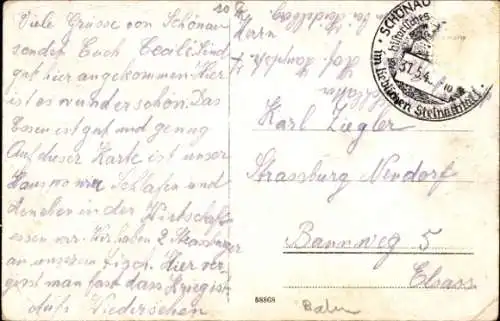 Viele Grüsse von Schönau
sendet Euch Cecili. Sind
gut hier angekommen. Hier
ist es wunderschön. Das
Essen ist gut und genug
Auf dieser Karte ist unser
Haus wo wir Schlafen und
daneben in der Wirtschaft
essen wir. Wir haben 2 Strassburger
an unserem Tisch. Hier ver-
gisst man fast dass Krieg ist
Auf Wiedersehen
Herrn
Karl Ziegler
Strassburg Neudorf
Bannweg 5
Elsass
SCHÖNAU
historisches
im lieblichen Steinachtal
58868